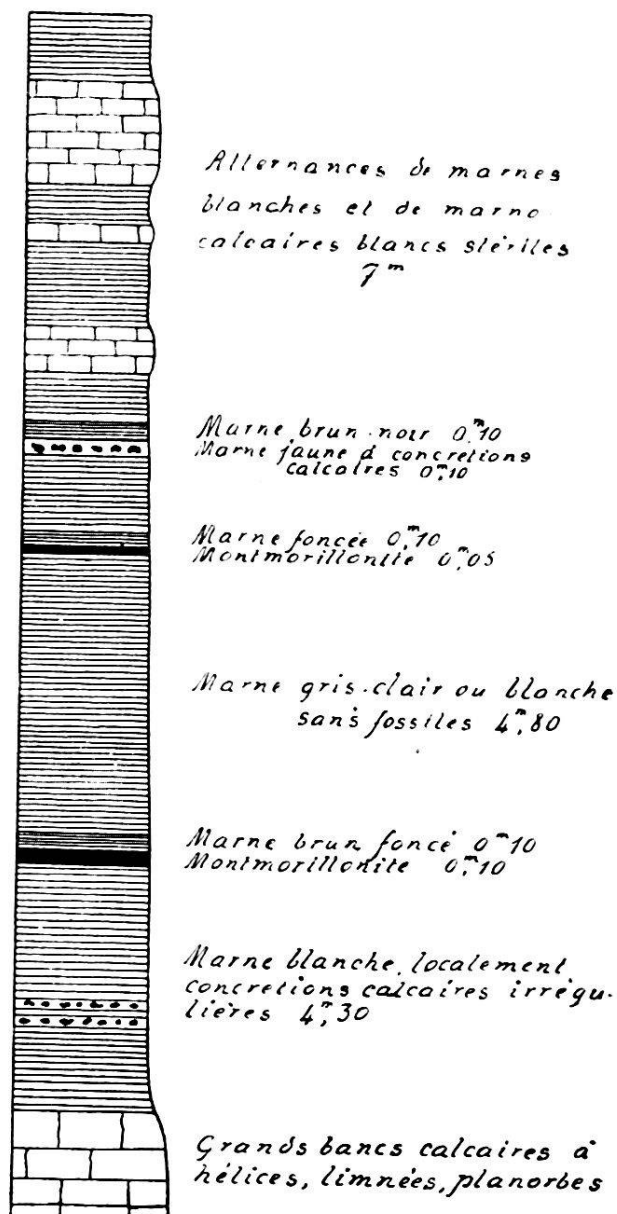 Alternances de marnes
blanches et de marno
calcaires blancs stériles
7ᵐ
Marne brun-noir 0ᵐ,10
Marne jaune à concretions
calcaires 0ᵐ,10
Marne foncée 0ᵐ,10
Montmorillonite 0ᵐ,05
Marne gris-clair ou blanche
sans fossiles 4ᵐ,80
Marne brun foncé 0ᵐ,10
Montmorillonite 0ᵐ,10
Marne blanche, localement
concretions calcaires irrégu-
lières 4ᵐ,30
Grands bancs calcaires à
hélices, limnées, planorbes